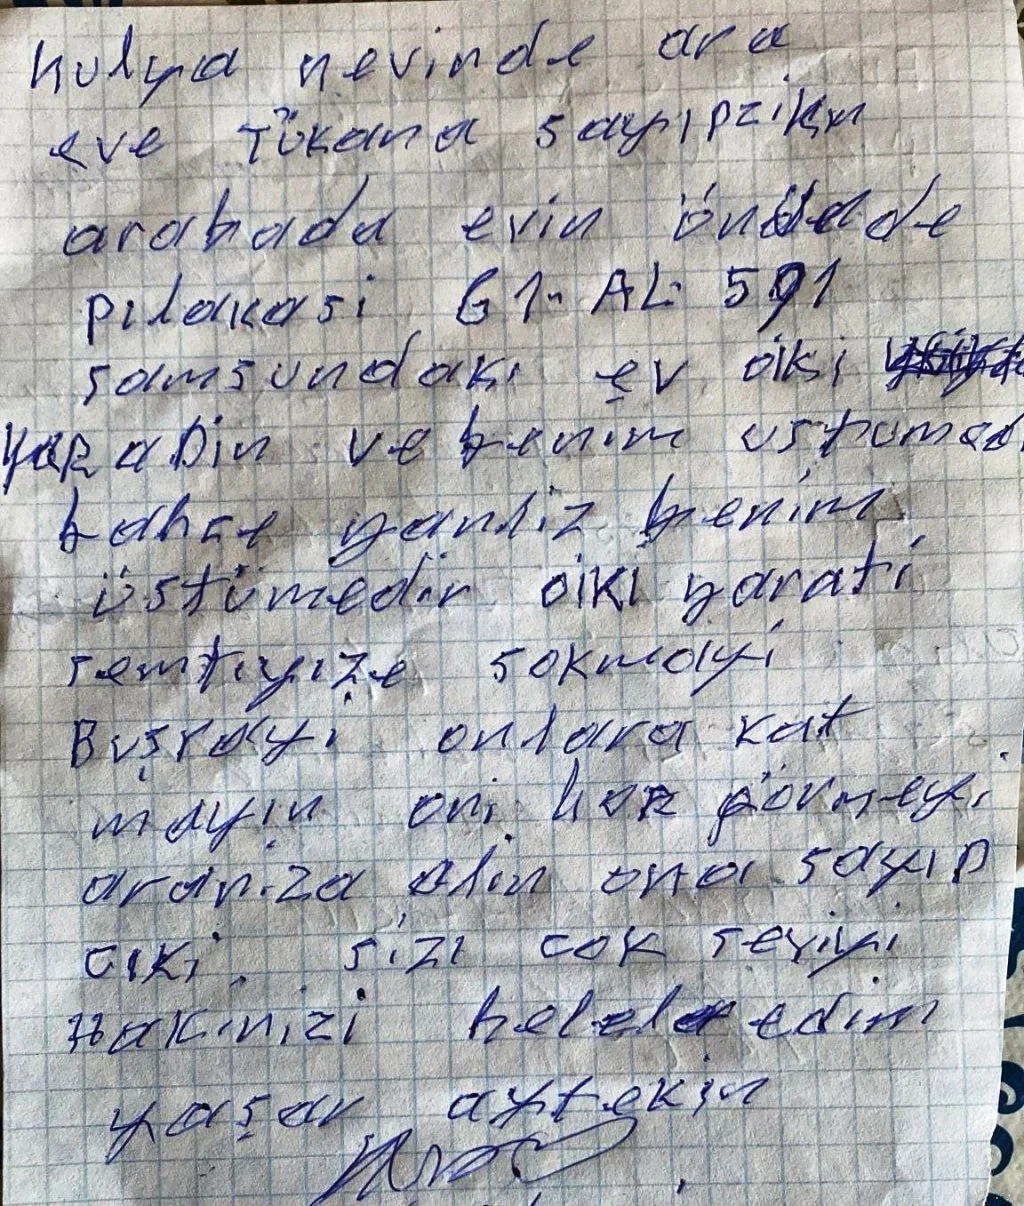 hulya nevinde ara
eve Tükana sayıpzikın
arabada evin önünde
pilakasi 61. AL. 591
samsundaki ev oiki
ve benim ustumed
bahce yanliz benim
üstümedir oiki yarati
semtiyize sokmayi
Buşrayi onlara kat
mayın oni hor görmeyi
araniza alin ona sayıp
cıki. sizi cok seviyi
Hakinizi helel edim
yaşar aytekin